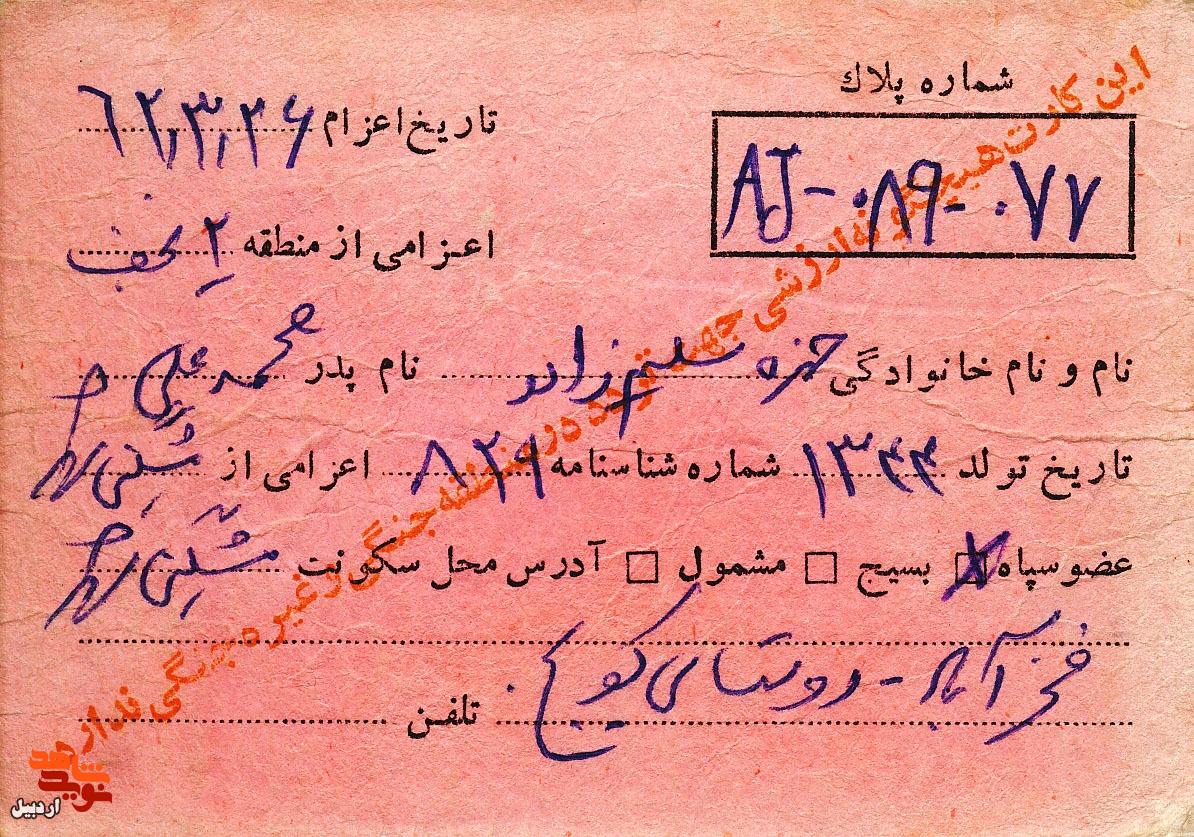 شماره پلاك
AJ-۰۸۹-۰۷۷
تاریخ اعزام ۶۲,۳,۲۶
اعزامی از منطقه ۲ نجف
نام و نام خانوادگی حمزه سلیم‌زاده نام پدر محمدعلی
تاریخ تولد ۱۳۴۴ شماره شناسنامه ۸۲۹ اعزامی از مشگین شهر
عضو سپاه بسیج مشمول آدرس محل سکونت مشگین شهر
فخرآباد - روستای کویج
تلفن
این کارت هیچگونه ارزشی جهت تردد در منطقه جنگی و غیره جنگی ندارد
شاهد
نوید
اردبیل